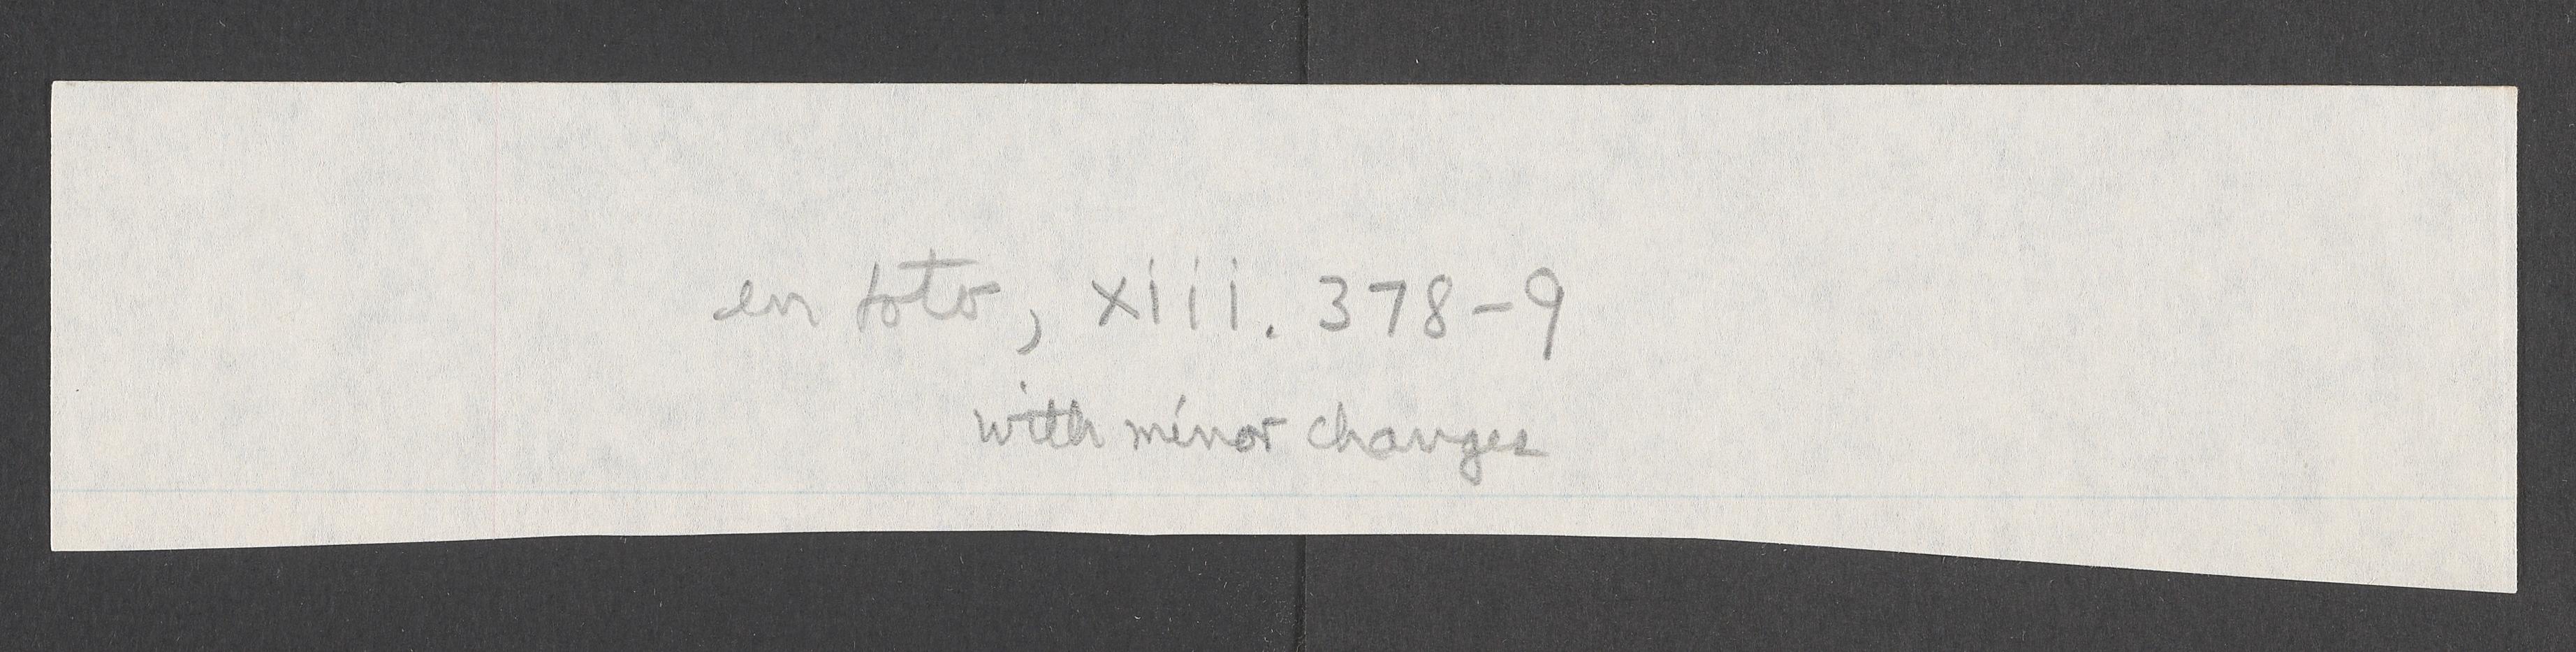 en toto, xiii. 378-9
with minor changes